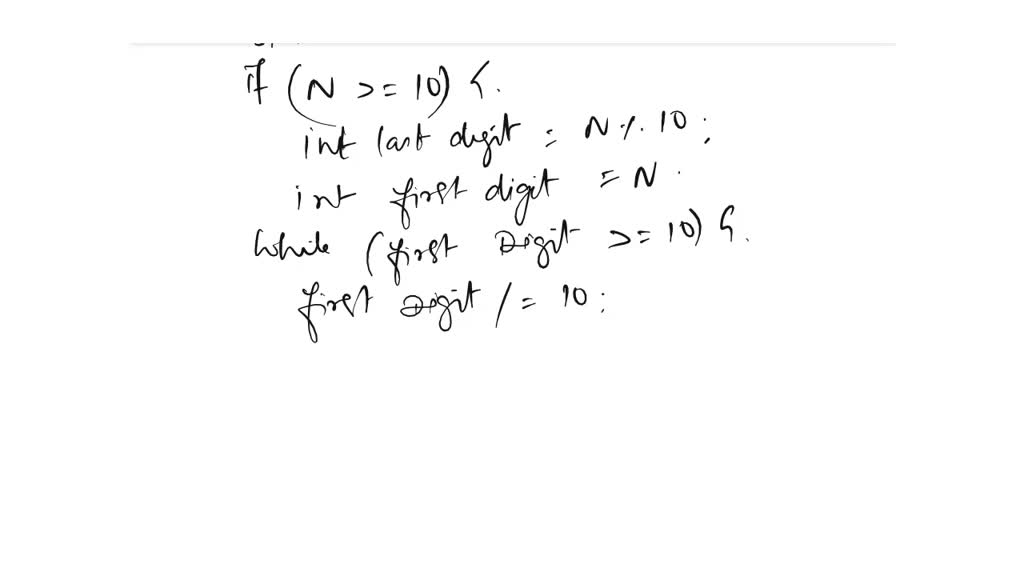 if (N >= 10) {.
int last digit = N % 10;
int first digit = N.
while (first Digit >= 10) {.
first Digit /= 10;